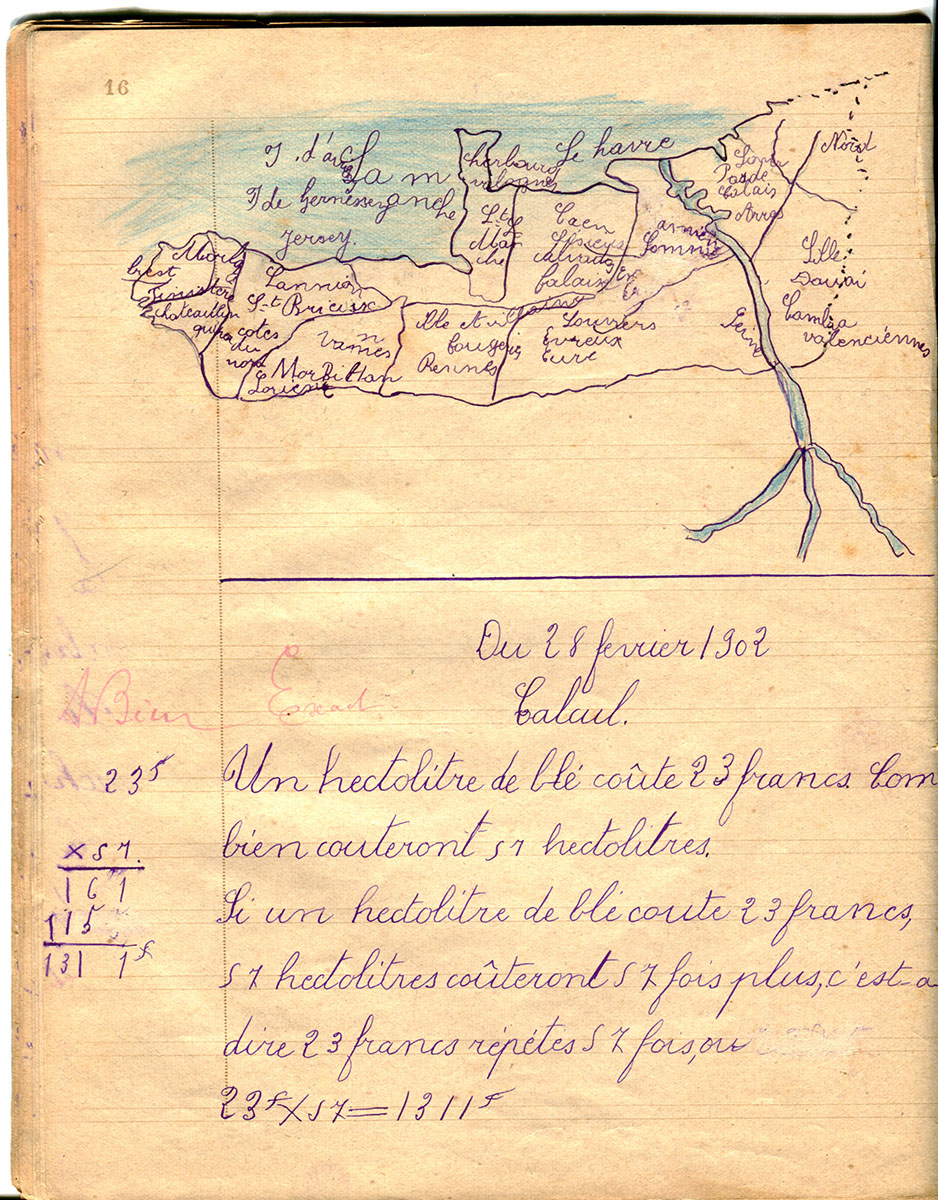 16
I. d'
La manche
I de Gernessey
Jersey.
Cherbourg
valognes
Le havre
St
Caen
Lisieus
falaise
amiens
Somme
Pas de
Calais
Arras
Nord
Lille
Douai
valenciénnes
brest
Finistere
chateaulin
Lannion
St Brieux
cotes
du
nord
Vannes
MorBihan
Lorient
Ille et vilaine
fougeres
Rennes
Louviers
Evreux
Eure
Seine
Du 28 fevrier 1902
Calcul.
Bien Exact
23f
x 57.
161
115
1311f
Un hectolitre de blé coûte 23 francs. Com
bien couteront 57 hectolitres.
Si un hectolitre de blé coute 23 francs,
57 hectolitres coûteront 57 fois plus, c'est-a-
dire 23 francs répétes 57 fois, ou
23f x 57 = 1311f